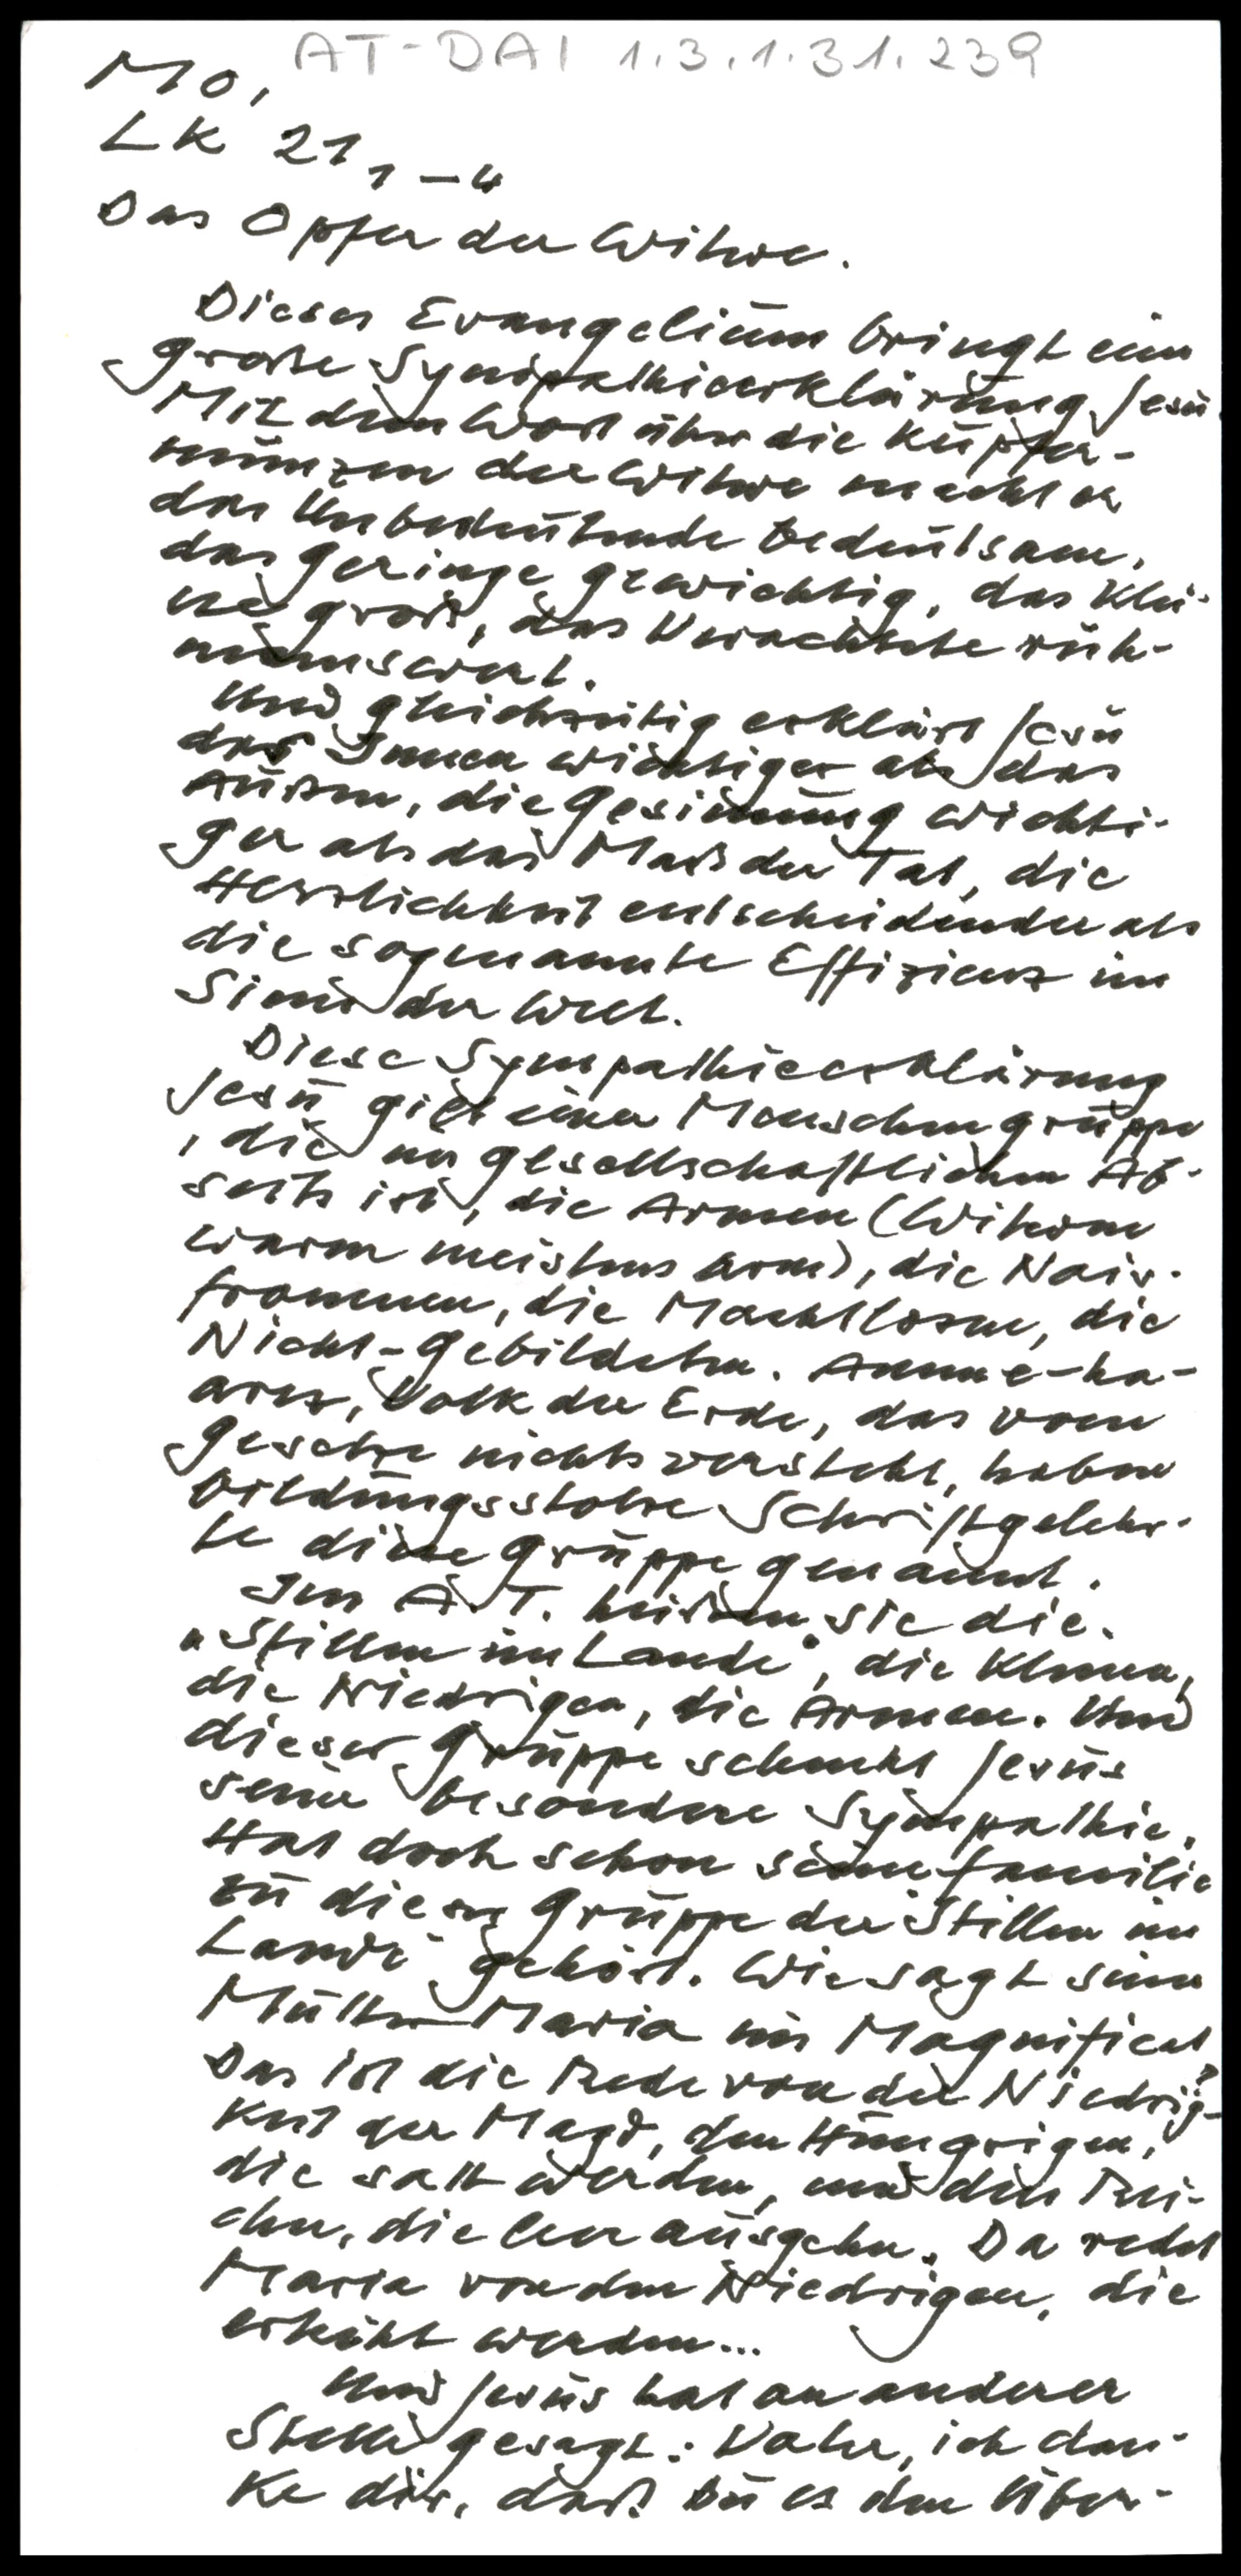 AT-DAI 1.3.1.31.239
Mo,
Lk 21, 1-4
Das Opfer der Witwe.
Dieses Evangelium bringt eine
große Sympathieerklärung Jesu.
Mit dem Wort über die Kupfer-
münzen der Witwe macht er
das Unbedeutende bedeutsam,
das Geringe gewichtig, das Klei-
ne groß, das Verachtete rüh-
menswert.
Und gleichzeitig erklärt Jesu
das Innen wichtiger als das
Außen, die Gesinnung wichti-
ger als das Maß der Tat, die
Herzlichkeit entscheidender als
die sogenannte Effizienz im
Sinne der Welt.
Diese Sympathieerklärung
Jesu gilt einer Menschengruppe
, die im gesellschaftlichen Ab-
seits ist, die Armen (Witwen
waren meistens arm), die Naiv-
frommen, die Machtlosen, die
Nicht-Gebildeten. Amme-ha-
arez, Volk der Erde, das vom
Gesetze nichts versteht, haben
bildungsstolze Schriftgelehr-
te diese Gruppe genannt.
Im A.T. heißen sie die
"Stillen im Lande", die Kleinen,
die Niedrigen, die Armen. Und
dieser Gruppe schenkt Jesus
seine besondere Sympathie.
Hat doch schon seine Familie
zu dieser Gruppe der "Stillen im
Lande" gehört. Wie sagt seine
Mutter Maria im Magnificat?
Das ist die Rede von der Niedrig-
keit der Magd, den Hungrigen,
die satt werden, und den Rei-
chen, die leer ausgehn. Da redet
Maria von den Niedrigen, die
erhöht werden...
Und Jesus hat an anderer
Stelle gesagt: Vater, ich dan-
ke dir, daß Du es den Über-